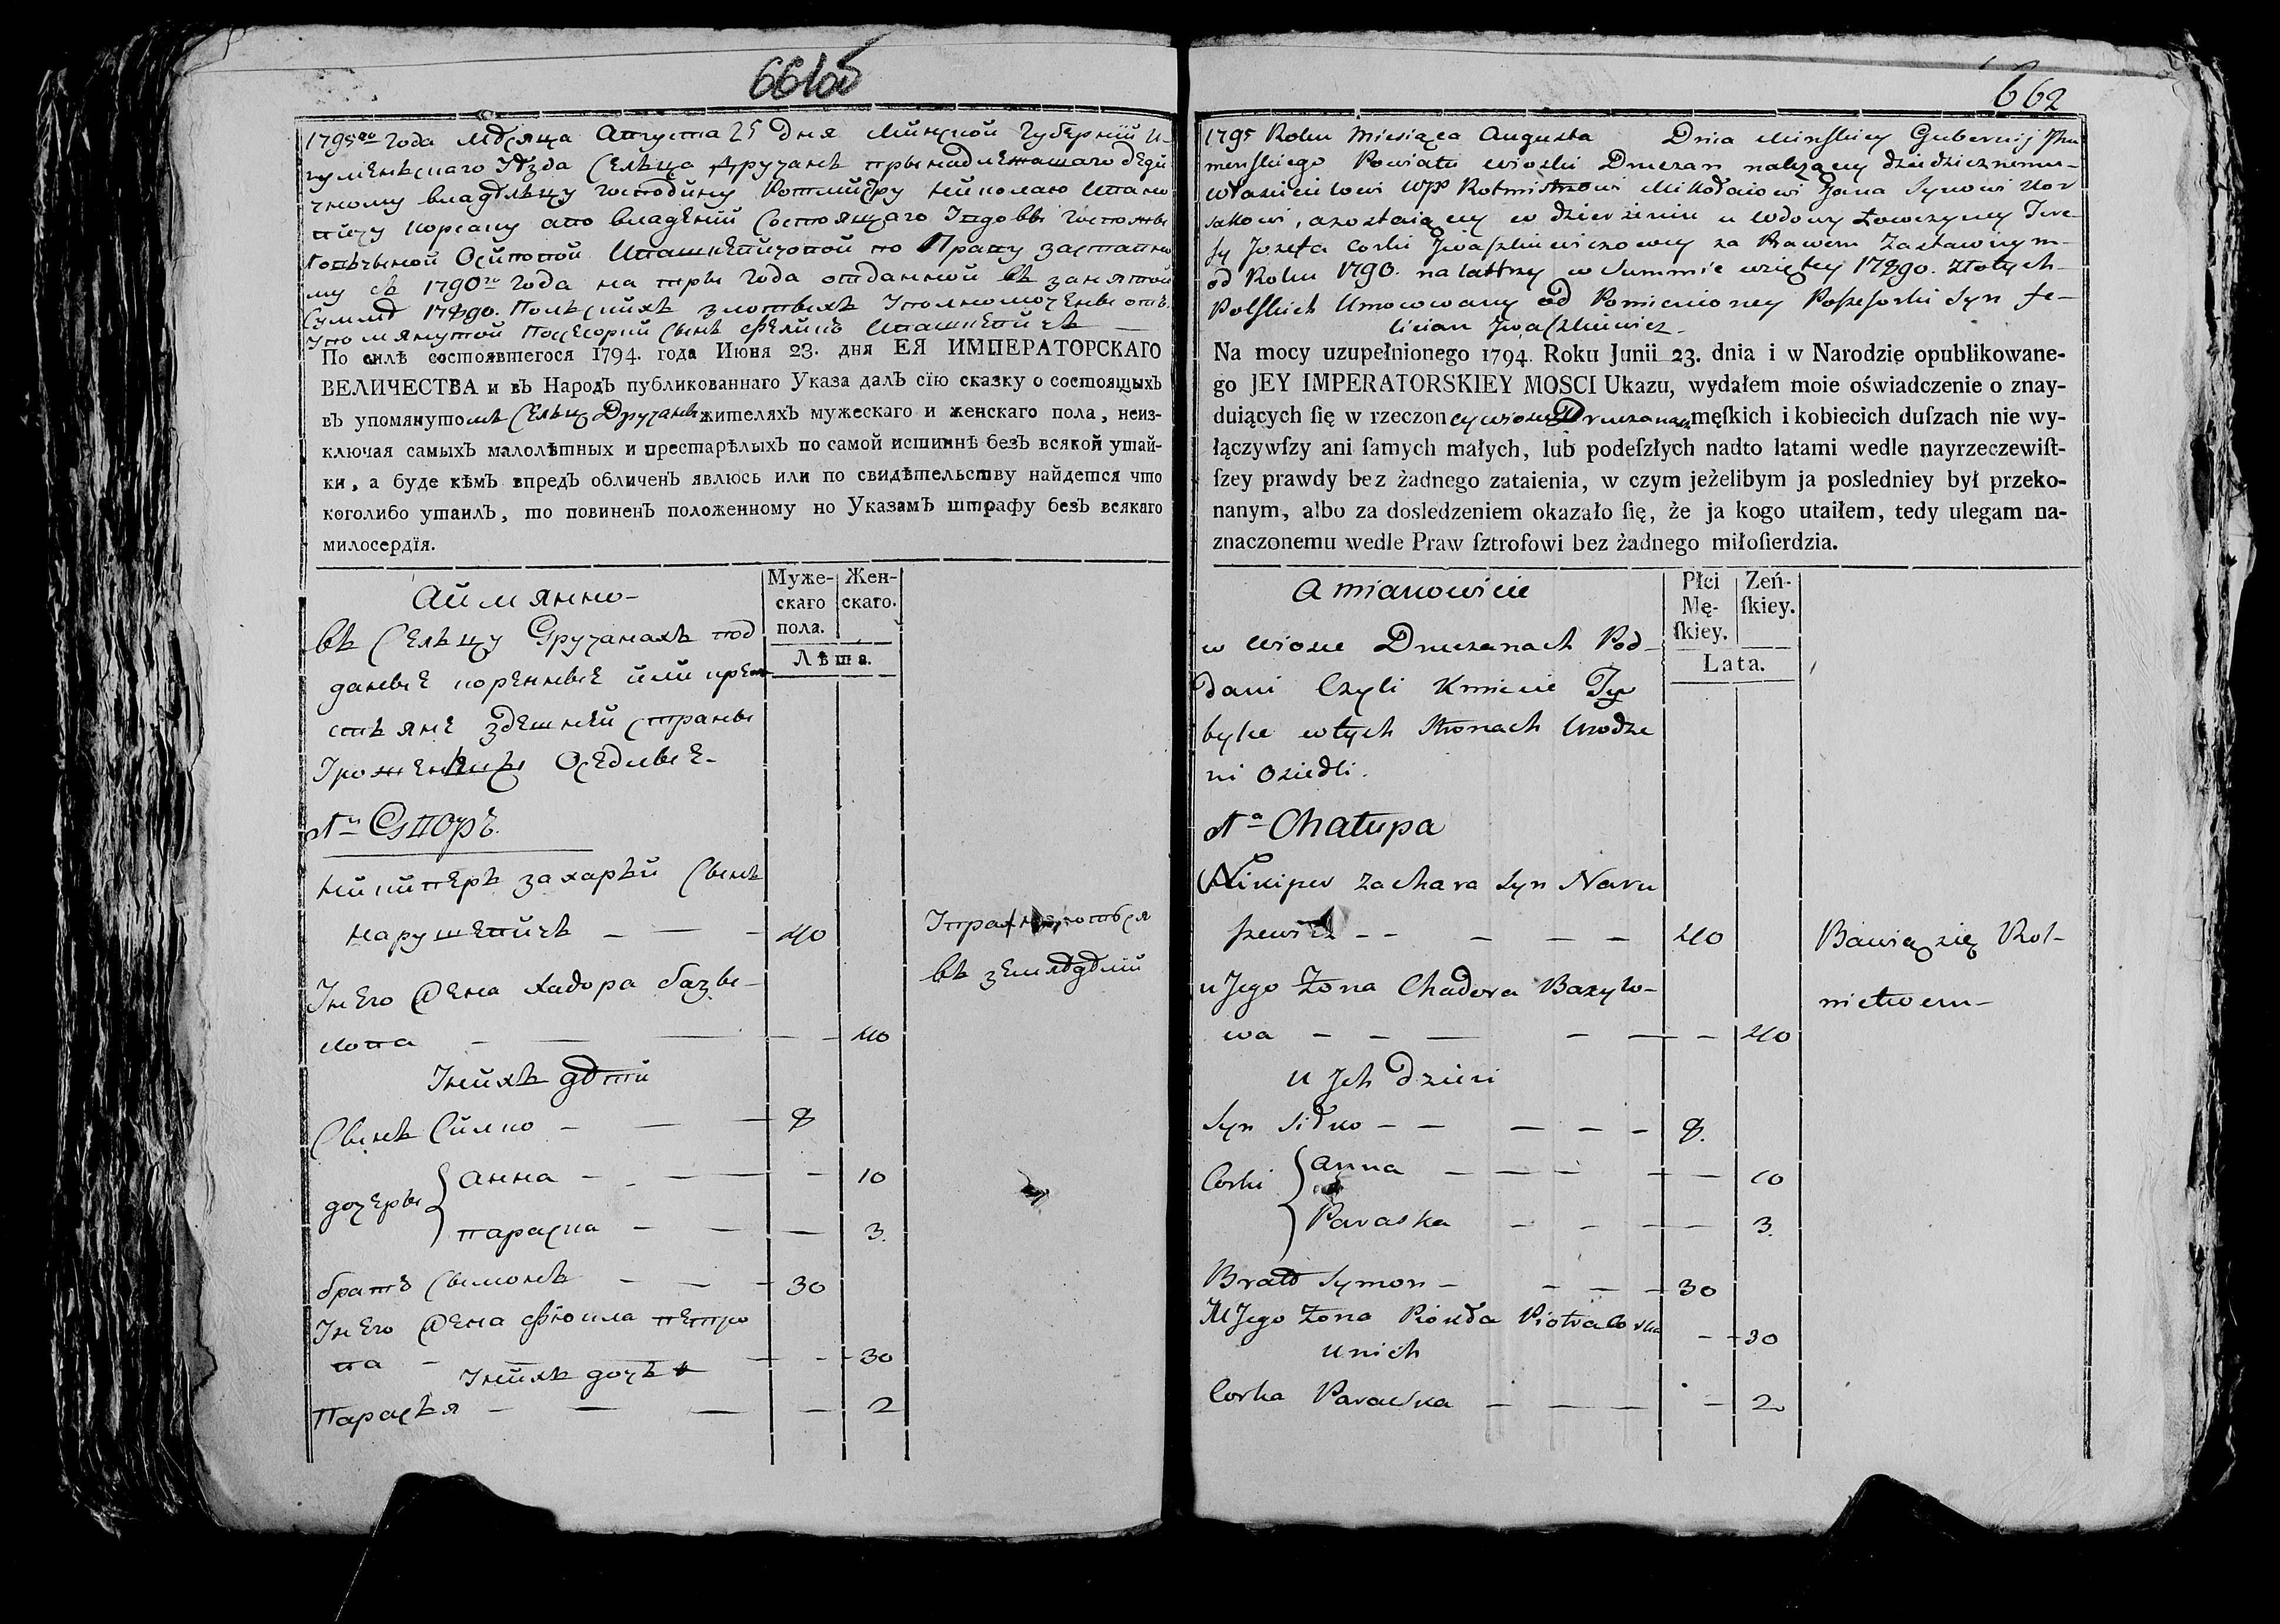 661об
1795го Года Мѣсяца Августа 25 Дня Минской Губернїи И-
гуменьскаго Уѣзда Сельца Дручанъ принадлежащаго дѣди
чному владѣльцу господину Ротмистру Николаю Ивано
вичу Корсаку а во владѣнїи состоящаго у вдовы
Осиповой Ивашкевичовой по Праву заставно
му съ 1790го Года на три Года отданной въ занятой
Суммѣ 17890. Польскихъ злотыхъ Уполномоченны отъ
упомянутой Посесорки Сынъ Фелицïянъ Ивашкевичъ
По силѣ состоявшегося 1794. года Июня 23. дня ЕЯ ИМПЕРАТОРСКАГО
ВЕЛИЧЕСТВА и въ Народъ публикованнаго Указа далъ сїю сказку о состоящыхъ
въ упомянутомъ Сельцѣ Дручанѣ жителяхъ мужескаго и женскаго пола, неиз-
ключая самыхъ малолѣтных и престарѣлыхъ по самой истиннѣ безъ всякой утай-
ки, а буде кѣмъ впредъ обличенъ явлюсь или по свидѣтельству найдется что
коголибо утаилъ, то повиненъ положенному по Указамъ штрафу безъ всякаго
милосердїя.
Аймянно-
Муже-
скаго
пола.
Жен-
скаго.
Лѣта.
въ Сельцу Дручанахъ под
даные коренные или кре
стьяне здешней страны
Уроженцы Оседлые-
№ 1й Дворъ.
Никиперъ Захарьи Сынъ
Нарушевичъ — — — 40
Упражняются
въ земледѣлїи
У Него Жена Хадора Базы-
лова — — — 40
У Нихъ дѣти
Сынъ Силко — — — 8
дочеры Анна — — — 10
Параска — — — 3.
братъ Сымонъ — — — 30
У Него Жена Фіокла Петро
ва — — — 30
У Нихъ дочь
Парасья — — — 2
662
1795 Roku Miesiąca Augusta Dnia Minskiey Gubernij Ihu
menskiego Powiatu wioski Druczan należącey dziedzicznemu
właścicielowi WJP Rotmistrzowi Mikołaiowi Jana Synowi Kor
sakowi, a zostaiącey w dzierżeniu u wdowy Łowczyney Tere
sy Jozefa Corki Jwaszkiewiczowey za Prawem Zastawnym-
od Roku 1790. na lat trzy w Summie wziętey 17890. Złotych-
Polskich Umocowany od Pomienioney Possesorki Syn Fe-
lician Jwaszkiewicz.
Na mocy uzupełnionego 1794. Roku Junii 23. dnia i w Narodzię opublikowane-
go JEY IMPERATORSKIEY MOSCI Ukazu, wydałem moie oświadczenie o znay-
duiących ſię w rzeczoney wiosce Druczanach męſkich i kobiecich duſzach nie wy-
łączywſzy ani ſamych małych, lub podeſzłych nadto latami wedle nayrzeczewiſt-
ſzey prawdy bez żadnego zataienia, w czym jeżelibym ja posledniey był przeko-
nanym, albo za dosledzeniem okazało ſię, że ja kogo utaiłem, tedy ulegam na-
znaczonemu wedle Praw ſztrofowi bez żadnego miłoſierdzia.
A mianowicie
Płci
Mę-
ſkiey.
Zeń-
ſkiey.
Lata.
w wiosce Druczanach Pod-
dani Czyli Kmiecie Tu
bylce w tych Stronach Urodze
ni Osiedli.
№ 1a Chałupa
Nikiper Zachara Syn Naru
szewicz — — — — — 40
Bawią się Rol-
nictwem-
u Jego Zona Chadora Bazylo-
wa — — — — — 40
u Jch Dzieci
Syn Siłko — — — — — 8.
Corki Anna — — — — — 10
Paraska — — — — 3.
Bratt Symon — — — — 30
U Jego Zona Piokła Piotra Corka — — 30
u nich
Corka Paraska — — — — 2